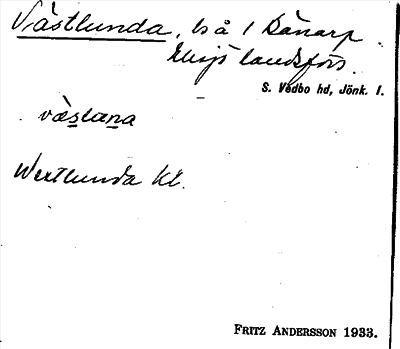 Västlunda, ls å 1 Bänarp
landsförs.
S. Vedbo hd, Jönk. l.
väslana
Westlunda Kl.
FRITZ ANDERSSON 1933.